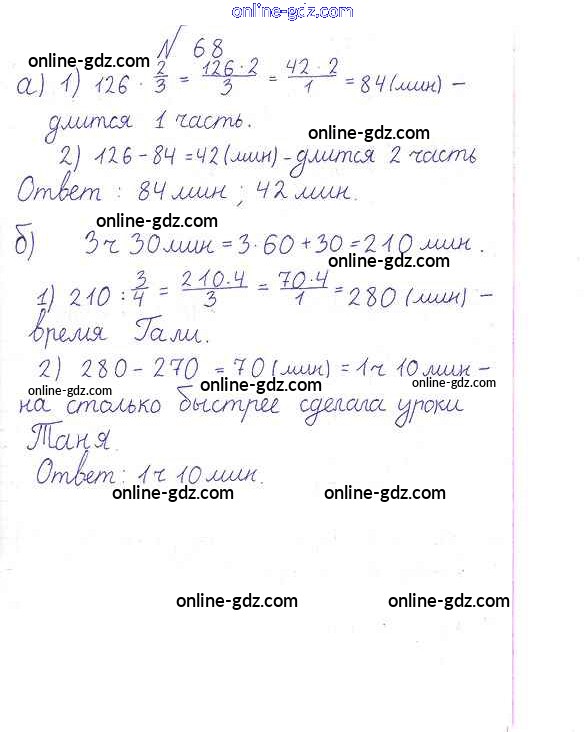 online-gdz.com
№ 68
online-gdz.com
а) 1) 126 · 2/3 = 126·2/3 = 42·2/1 = 84 (мин) –
длится 1 часть.
online-gdz.com
2) 126 – 84 = 42 (мин) – длится 2 часть
Ответ : 84 мин ; 42 мин.
online-gdz.com
б) 3 ч 30 мин = 3·60 + 30 = 210 мин .
online-gdz.com
1) 210 : 3/4 = 210·4/3 = 70·4/1 = 280 (мин) –
время Гали.
online-gdz.com
2) 280 – 270 = 70 (мин) = 1 ч 10 мин –
online-gdz.com online-gdz.com online-gdz.com
на столько быстрее сделала уроки
Таня.
Ответ : 1 ч 10 мин.
online-gdz.com online-gdz.com
online-gdz.com online-gdz.com